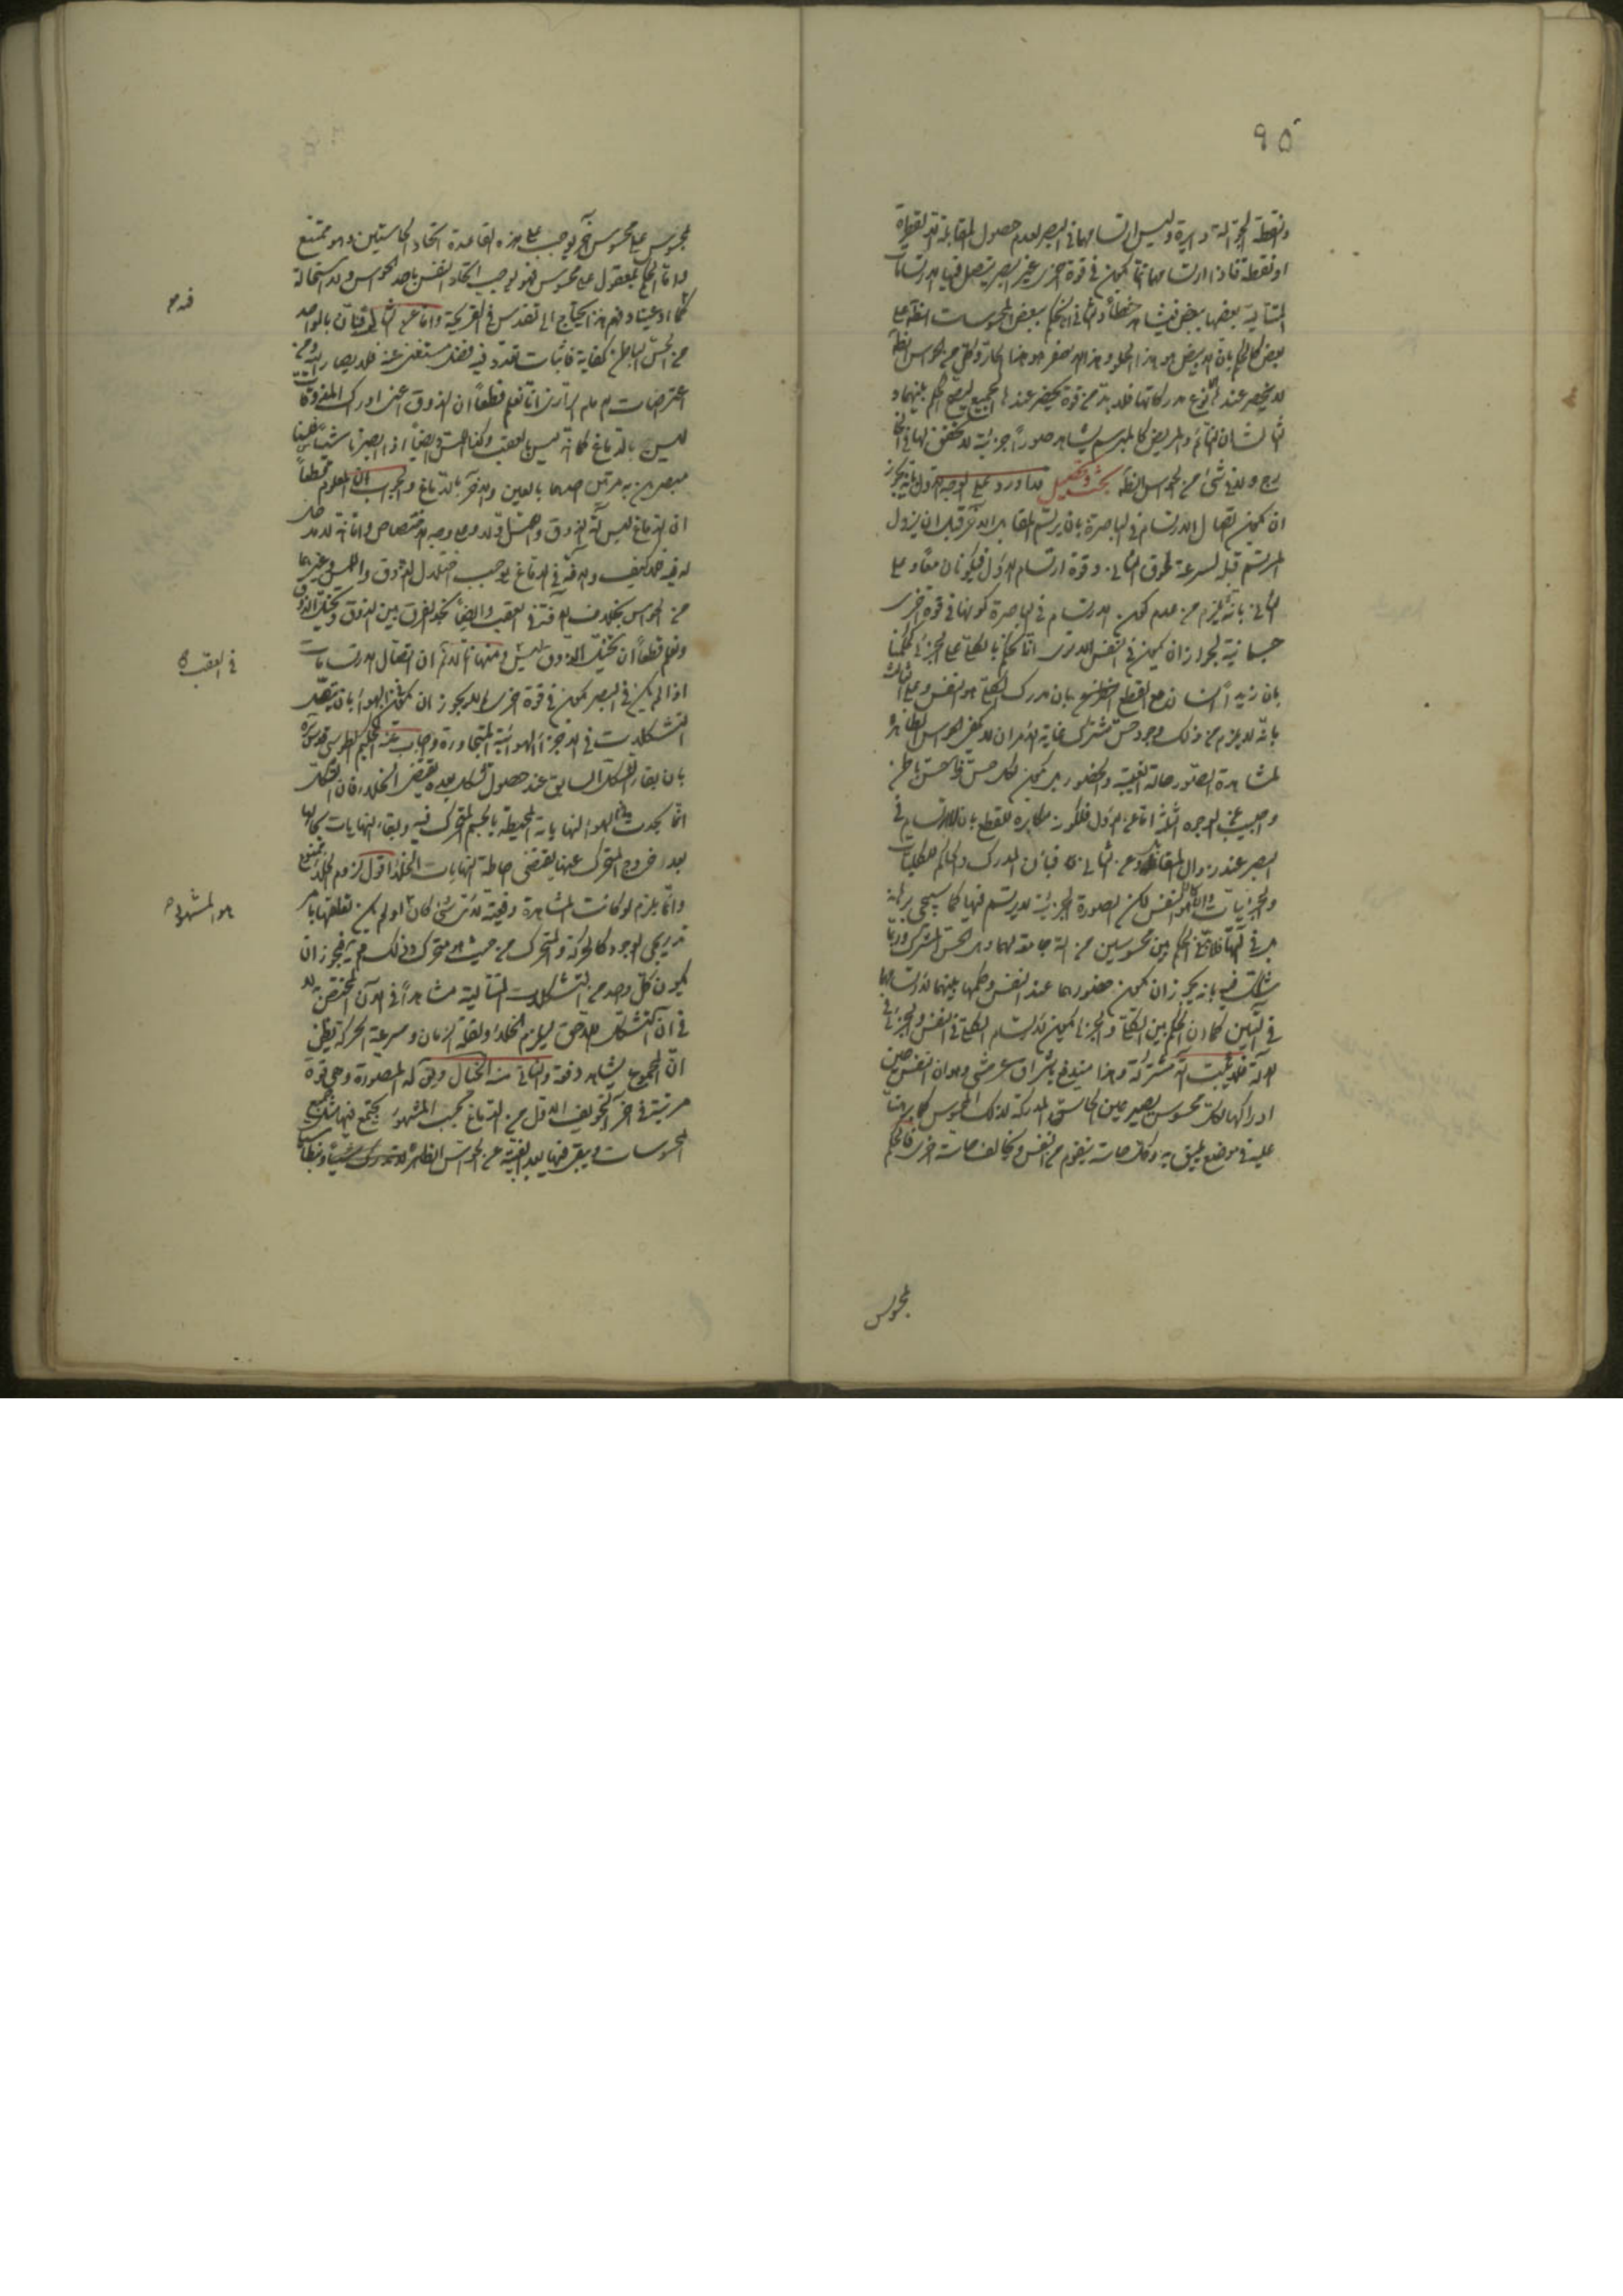 ٩٥
ونقطة الجوالة دايرة وليس ارتسامهما في البصر لعدم حصول المقابلة الا لقطرة
او نقطة فاذا ارتسامهما انما يكون في قوة اخرى غير البصر يتصل فيها الارتسامات
المتتالية بعضها ببعض فيشاهد خطاً والثاني انا نحكم ببعض المحسوسات الظاهرة على
بعض كالحكم بان هذا الابيض هو هذا الحلو وهذا الاصفر هو هذا الحار وكل من الحواس الظاهرة
لا يحضر عند الا نوع مدركاتها فلا بد من قوة يحضر عندها الجميع ليصح الحكم بينهما و
ثالثا ان النائم والمريض كالمبرسم يشاهد صوراً جزئية لا تحقق لها في الخا
رج ولا في شئ من الحواس الظاهرة بحث وتحصيل قد اورد على الوجه الاول بانه يجوز
ان يكون اتصال الارتسام في الباصرة بان يرتسم المقابل الآخر قبل ان يزول
المرتسم قبله لسرعة لحوق الثاني وقوة ارتسام الاول فيكونان معاً وعلى
الثاني بانه لا يلزم من عدم كون الارتسام في الباصرة كونها في قوة اخرى
جسمانية لجواز ان يكون في النفس الا ترى انا نحكم بالكلي على الجزئي كحكمنا
بان زيداً انسان مع القطع بان مدرك الكلي هو النفس وعلى الثالث
بانه لا يلزم من ذلك وجود حس مشترك غاية الامر ان لا يكفي الحواس الظاهرة
لمشاهدة الصور حالة الغيبة والحضور بل يكون لكل حس ظاهر حس باطن
واجيب عن الوجوه الثلثة اما عن الاول فلكونه مكابرة للقطع بان لا ارتسام في
البصر عند زوال المقابلة وعن الثاني فبان المدرك والحاكم للكليات
والجزئيات وان كان هو النفس لكن الصورة الجزئية لا يرتسم فيها كما سيجئ برهانه
بل في آلتها فلا بد في الحكم بين محسوسين من آلة جامعة لهما وهو الحس المشترك وربما
يشكك فيه بانه يجوز ان يكون حضورهما عند النفس وحكمها بينهما لارتسامهما
في آلتين كما ان الحكم بين الكلي والجزئي يكون لارتسام الكلي في النفس والجزئي في
الآلة فلا يثبت آلة مشتركة وهذا مندفع باشراق عرشي وهو ان النفس حين
ادراكها لكل محسوس يصير عين الحاسة المدركة لذلك المحسوس كما برهنا
عليه في موضع يليق به وكل حاسة يتقوم من النفس ويخالف حاسة اخرى فالحكم
لمحسوس
لمحسوس على محسوس آخر يوجب على هذه القاعدة اتحاد الحاستين وهو ممتنع
واما الحكم لمعقول على محسوس فهو يوجب اتحاد النفس باحد الحواس ولا استحالة
كما ادعيناه وفهم هذا يحتاج الى تقدس في القريحة واما عن الثالث فبان بالواحد
من الحس الباطن كفاية فاثبات تعدد فيه فضل مستغنى عنه فلا يصار اليه ومن
اعتراضات الامام الرازي انا نعلم قطعاً ان الذوق اعني ادراك المذوقات
ليس بالدماغ كما انه ليس بالعقب وكذا اللمس وايضاً اذا ابصرنا شيئا فلسنا
مبصرين به مرتين احدهما بالعين والآخر بالدماغ والجواب ان المعلوم قطعاً
ان الدماغ ليس آلة الذوق واللمس اولا وعلى وجه الاختصاص واما انه لا مدخل
له فيه فلا كيف والآفة في الدماغ يوجب اختلال الذوق واللمس وغيرهما
من الحواس بخلاف الآفة في العقب وايضاً نجد الفرق بين الذوق وتخيل الذوق
ونعلم قطعاً ان تخيل الذوق ليس ومنها انا لا نم ان اتصال الارتسامات
اذا لم يكن في البصر يكون في قوة اخرى لم لا يجوز ان يكون في الهواء بان يتصل
التشكلات في الاجزاء الهوائية المتجاورة واجاب عنه الحكيم الطوسي قدس سره
بان بقاء التشكل السابق عند حصول تشكل بعده يقتضي الخلاء فان التشكل
انما يحدث في الهواء لنهاياته المحيطة بالجسم المتحرك فيه وبقاء النهايات بحالها
بعد خروج المتحرك عنها يقتضي احاطة النهايات بالخلاء اقول لزوم الخلاء ممنوع
وانما يلزم لو كانت المشاهدة دفعية لاي شئ كان او لم يكن تعلقها بامر
تدريجي الوجود كالحركة والمتحرك من حيث هو متحرك وذلك فيجوز ان
يكون كل واحد من التشكلات المتتالية مشاهداً في الآن المختص به لا
في آن التشكل اللاحق ليلزم الخلاء ولقلة الزمان وسرعة الحركة يظن
ان المجموع يشاهد دفعة والثاني منه الخيال ويق له المصورة وهي قوة
مرتبة في آخر التجويف الاول من الدماغ بحسب المشهور يجتمع فيها مثل جميع
المحسوسات ويبقى فيها بعد الغيبة عن الحواس الظاهرة
في العقب
هو المشهور